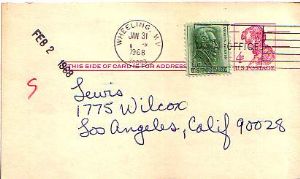 FEB 2 1968
WHEELING, W.V.
JAN 31
1968
OFFICE
4¢
U.S. POSTAGE
THIS SIDE OF CARD IS FOR ADDRESS
S
Lewis
1775 Wilcox
Los Angeles, Calif 90028